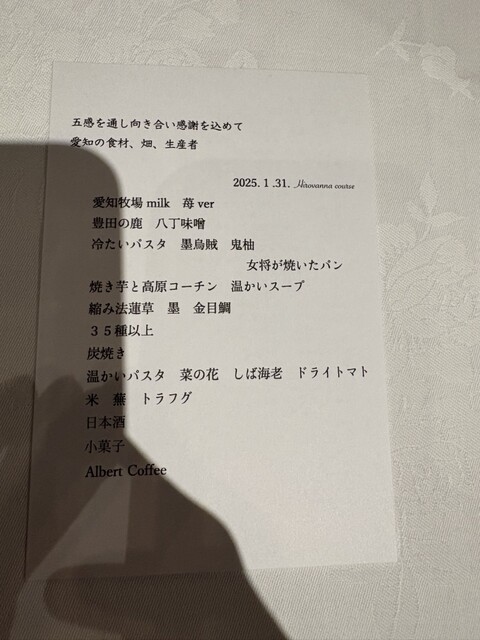 五感を通し向き合い感謝を込めて
愛知の食材、畑、生産者
2025.1.31. Hirovanna course
愛知牧場 milk 苺 ver
豊田の鹿 八丁味噌
冷たいパスタ 墨烏賊 鬼柚
女将が焼いたパン
焼き芋と高原コーチン 温かいスープ
縮み法蓮草 墨 金目鯛
３５種以上
炭焼き
温かいパスタ 菜の花 しば海老 ドライトマト
米 蕪 トラフグ
日本酒
小菓子
Albert Coffee